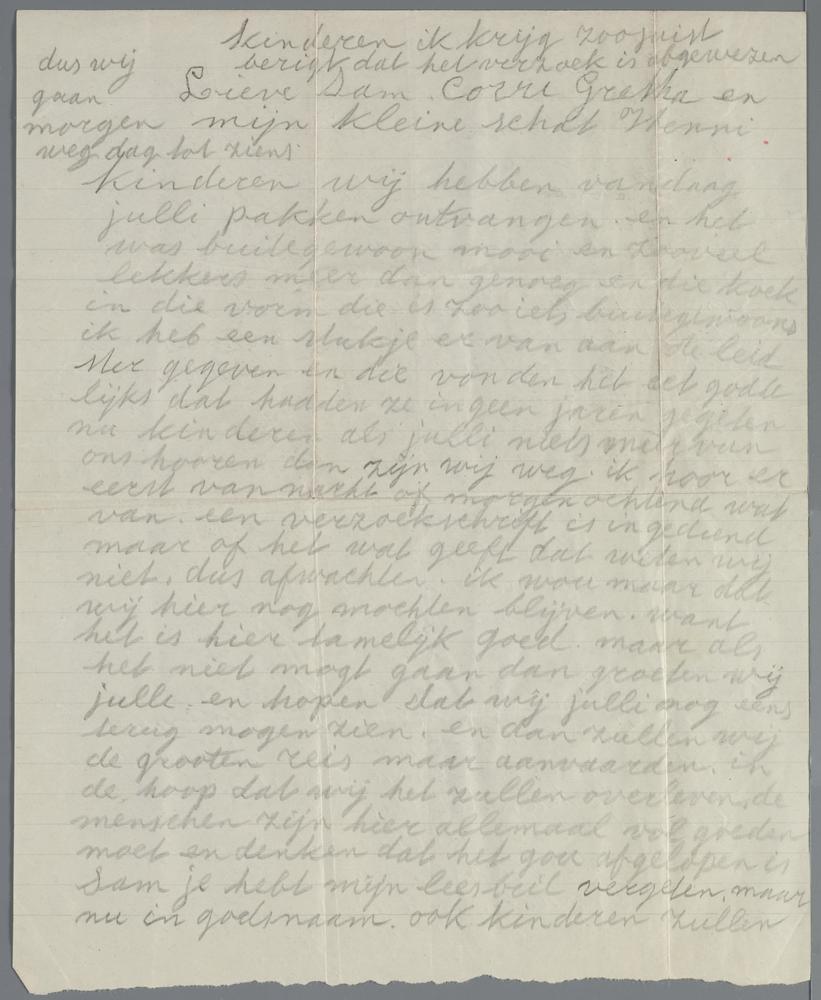 kinderen ik krijg zoojuist
berigt dat het verzoek is abgewezen
dus wij
gaan
morgen
weg dag tot ziens
Lieve Sam. Corri Gretha en
mijn kleine schat Henni
kinderen wij hebben vandaag
julli pakken ontvangen. en het
was buitegewoon mooi en zooveel
lekkers meer dan genoeg en die koek
in die vorm die is zoo iets buitegewoons
ik heb een stukje er van aan de leid
ster gegeven en die vonden het eet godde
lijks dat hadden ze in geen jaren gegeten
nu kinderen als julli niets meer van
ons hooren dan zijn wij weg. ik hoor er
eerst van nacht of morgen ochtend wat
van. een verzoekschrift is ingediend
maar of het wat geeft dat weten wij
niet. dus afwachten. ik wou maar dat
wij hier nog mochten blijven. want
het is hier tamelijk goed. maar als
het niet mogt gaan dan groeten wij
julle. en hopen dat wij julli nog eens
terug mogen zien. en dan zullen wij
de grooten reis maar aanvaarden. in
de hoop dat wij het zullen overleven. de
menschen zijn hier allemaal vol goeden
moet en denken dat het gou afgelopen is
Sam je hebt mijn leesbril vergeten. maar
nu in godsnaam. ook kinderen zullen